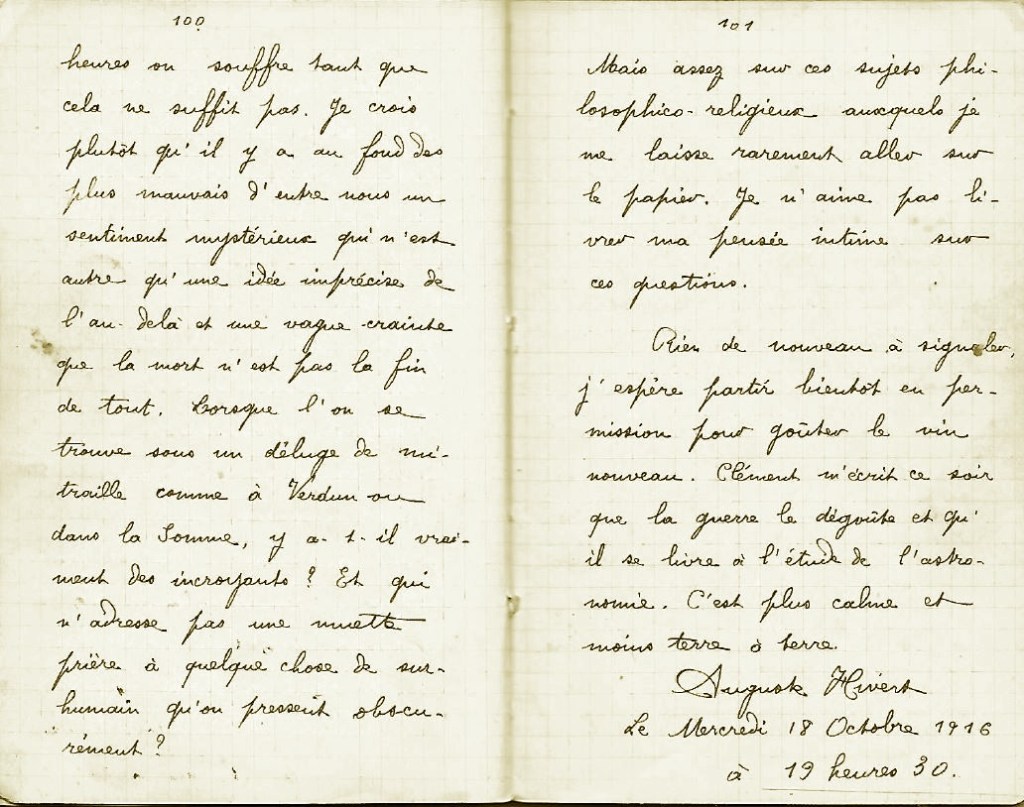 100
heures on souffre tant que
cela ne suffit pas. Je crois
plutôt qu'il y a au fond des
plus mauvais d'entre nous un
sentiment mystérieux qui n'est
autre qu'une idée imprécise de
l'au-delà et une vague crainte
que la mort n'est pas la fin
de tout. Lorsque l'on se
trouve sous un déluge de mi-
traille comme à Verdun ou
dans la Somme, y a-t-il vrai-
ment des incroyants ? Et qui
n'adresse pas une muette
prière à quelque chose de sur-
humain qu'on pressent obscu-
rément ?
101
Mais assez sur ces sujets phi-
losophico-religieux auxquels je
me laisse rarement aller sur
le papier. Je n'aime pas li-
vrer ma pensée intime sur
ces questions.
Rien de nouveau à signaler,
j'espère partir bientôt en per-
mission pour goûter le vin
nouveau. Clément m'écrit ce soir
que la guerre le dégoûte et qu'
il se livre à l'étude de l'astro-
nomie. C'est plus calme et
moins terre à terre.
Auguste Hivert
Le Mercredi 18 Octobre 1916
à 19 heures 30.